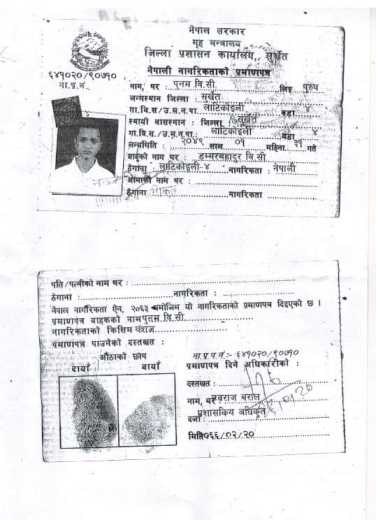 नेपाल सरकार
गृह मन्त्रालय
जिल्ला प्रशासन कार्यालय, सुर्खेत
नेपाली नागरिकताको प्रमाणपत्र
६४१०२०/९०७१०
ना.प्र.नं.
नाम, थर : पुनम वि.सी लिङ्ग पुरुष
जन्मस्थान जिल्ला : सुर्खेत
गा.वि.स/उ.म.न.पा. लाटिकोइली वडा ४
स्थायी वासस्थान : जिल्ला सुर्खेत
गा.वि.स./उ.म.न.पा. लाटिकोइली वडा ४
जन्ममिति : २०४९ साल ०१ महिना २१ गते
बाबुको नाम थर : डम्मरबहादुर वि.सी
ठेगाना लाटिकोइली-४ नागरिकता : नेपाली
आमाको नाम थर :
ठेगाना नागरिकता
पति/पत्नीको नाम थर :
ठेगाना : नागरिकता :
नेपाल नागरिकता ऐन, २०६३ बमोजिम यो नागरिकताको प्रमाणपत्र दिइएको छ ।
प्रमाणपत्र वाहकको नाम पुनम वि.सी.
नागरिकताको किसिम वंशज
प्रमाणपत्र पाउनेको दस्तखत :
औंठाको छाप
दायाँ बायाँ
ना.प्र.प.नं:- ६४१०२०/९०७१०
प्रमाणपत्र दिने अधिकारीको :
दस्तखत :
नाम, थर
प्रशासकिय अधिकृत
दर्जा :
मिति ०६६/०२/२०